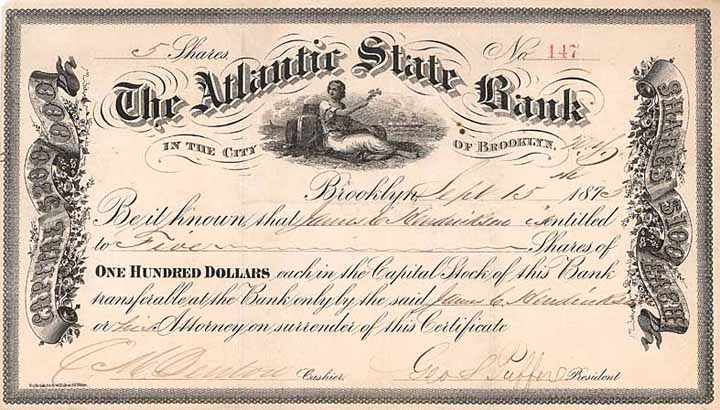 5 Shares No 147
The Atlantic State Bank
IN THE CITY OF BROOKLYN,
CAPITAL $200,000
SHARES $100 EACH
Brooklyn, Sept 15 187
Be it known, that James C Hendrickson is entitled
to Five Shares of
ONE HUNDRED DOLLARS each in the Capital Stock of this Bank
transferable at the Bank only by the said James C Hendrickson
or his Attorney on surrender of this Certificate
Cashier. Geo S Puffer President